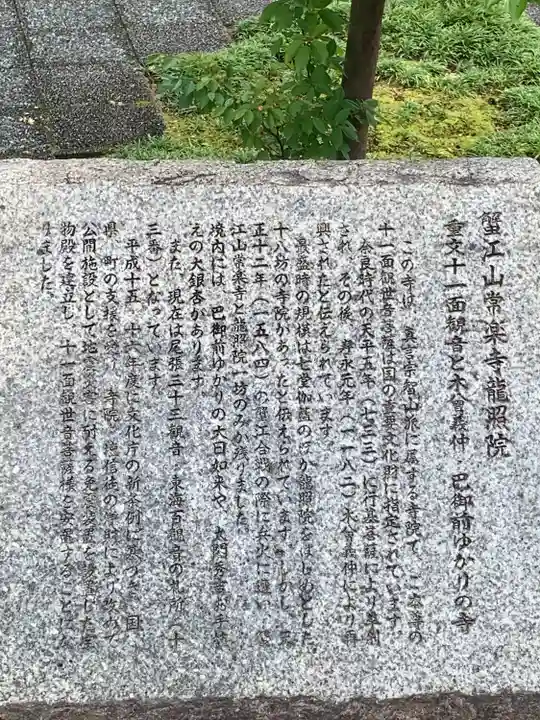 蟹江山常楽寺龍照院
重文十一面観音と木曽義仲・巴御前ゆかりの寺
この寺は、真言宗智山派に属する寺院で、ご本尊の
十一面観世音菩薩は国の重要文化財に指定されています。
奈良時代の天平五年(七三三)に行基菩薩により草創
され、その後、寿永元年(一一八二)木曽義仲により再
興されたと伝えられています。
最盛時の規模は七堂伽藍のほか龍照院をはじめとした
十八坊の寺院があったと伝えられています。しかし、天
正十二年(一五八四)の蟹江合戦の際に兵火に遭い、蟹
江山常楽寺と龍照院一坊のみが残りました。
境内には、巴御前ゆかりの大日如来や、太閤秀吉お手植
えの大銀杏があります。
また、現在は尾張三十三観音・東海百観音の札所(十
三番)となっています。
平成十五・十六年度に文化庁の新条例に基づき、国・
県・町の支援を 寺院・檀信徒の浄財により改めて
公開施設として地震災害に耐える免震装置を設置した宝
物殿を建立し、十一面観世音菩薩様を安置することになり
ました。